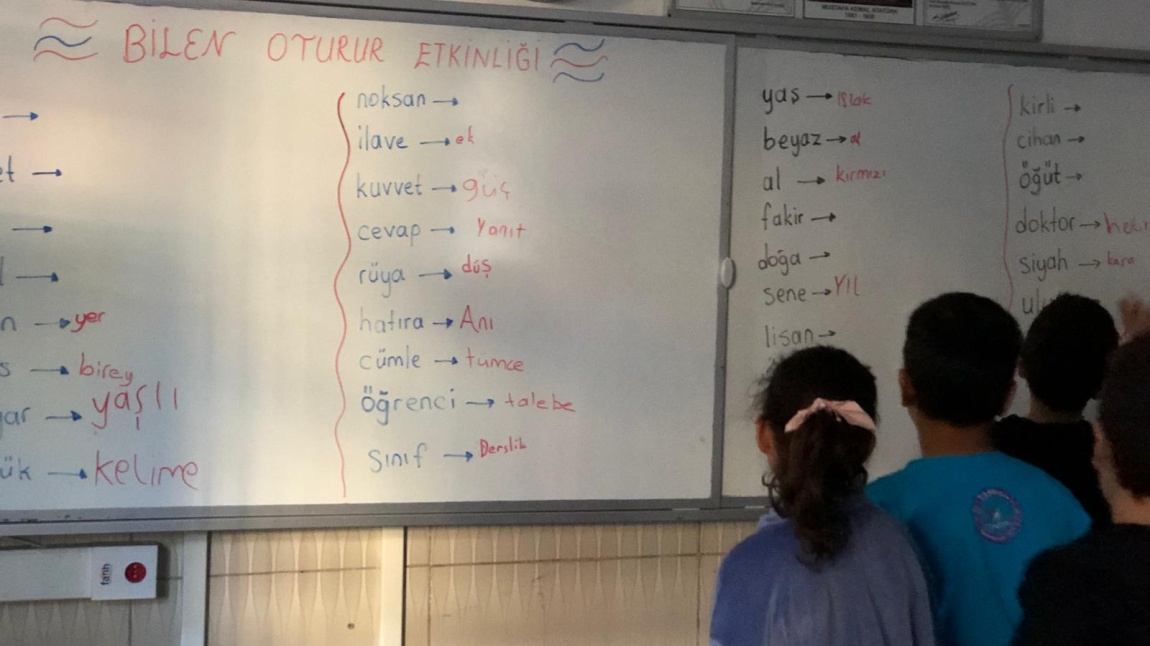 BİLEN OTURUR ETKİNLİĞİ
→
→
→
→
→ yer
→ birey
→ yaşlı
→ kelime
noksan →
ilave → ek
kuvvet → güç
cevap → Yanıt
rüya → düş
hatıra → Anı
cümle → tümce
öğrenci → talebe
sınıf → Derslik
yaş → ıslak
beyaz → ak
al → kırmızı
fakir →
doğa →
sene → Yıl
lisan →
kirli →
cihan →
öğüt →
doktor →
siyah → kara
MUSTAFA KEMAL ATATÜRK
1881 - 1938
fatih